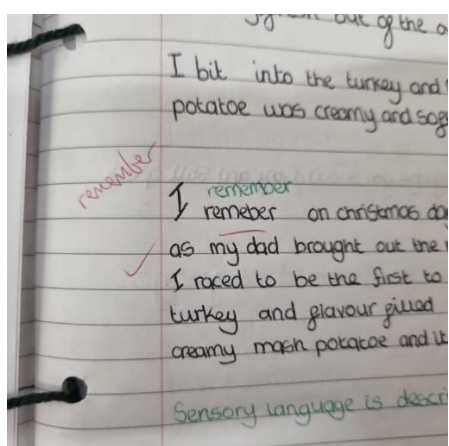 out of the
I bit into the turkey and
potatoe was creamy and
remember
remember
I remeber on christmas
as my dad brought out the
I raced to be the first to
turkey and flavour filled
creamy mash potatoe and it
Sensory language is descri